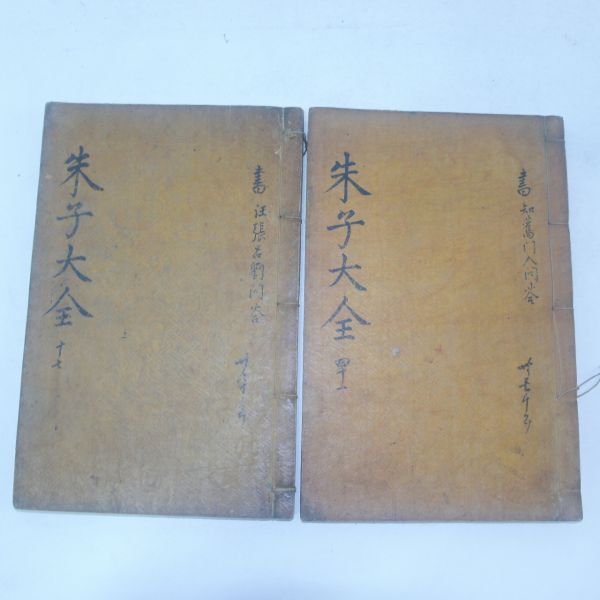 朱子大全
十七
書 汪張呂劉問答
朱子大全
四十一
書 知舊門人問答